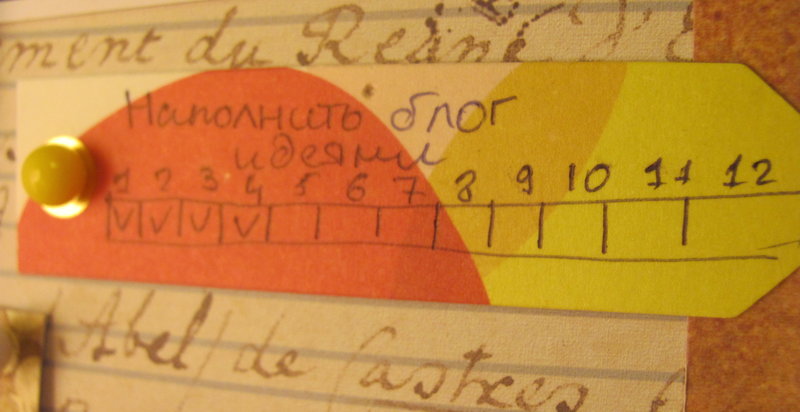 ment du Reane d'
Наполнить блог
идеями
1 2 3 4 5 6 7 8 9 10 11 12
V V V V
Abel de Castres